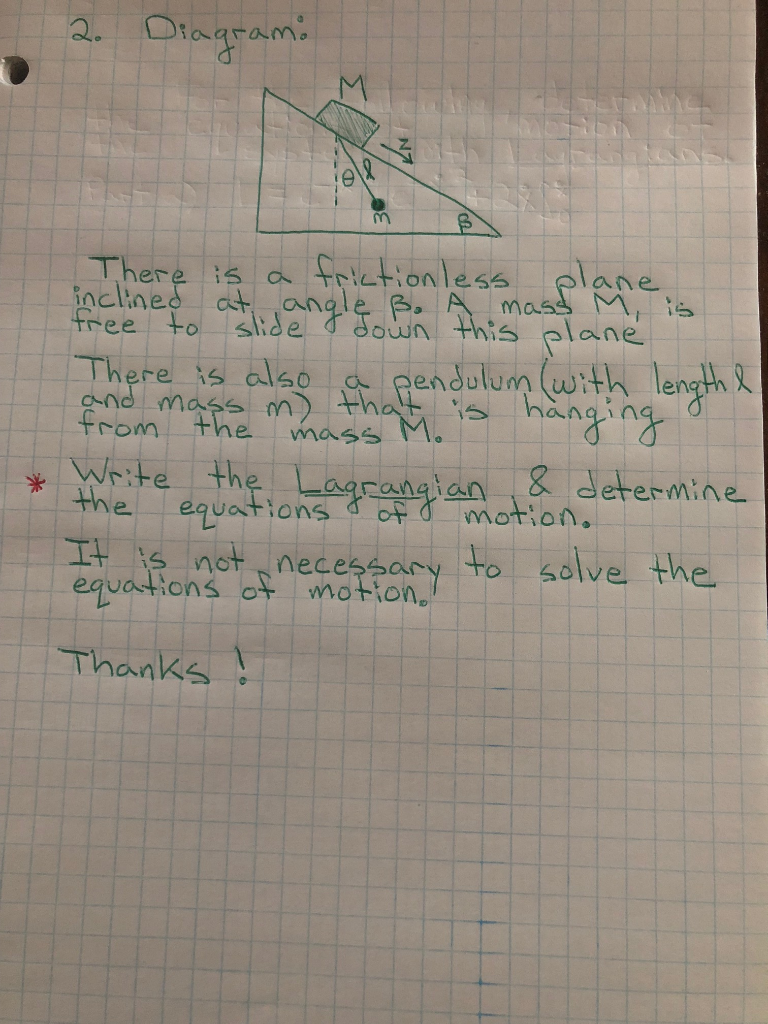 2. Diagram:
M
z
θ
l
m
β
There is a frictionless plane
inclined at angle β. A mass M, is
free to slide down this plane
There is also a pendulum (with length l
and mass m) that is hanging
from the mass M.
* Write the Lagrangian & determine
the equations of motion.
It is not necessary to solve the
equations of motion.
Thanks!